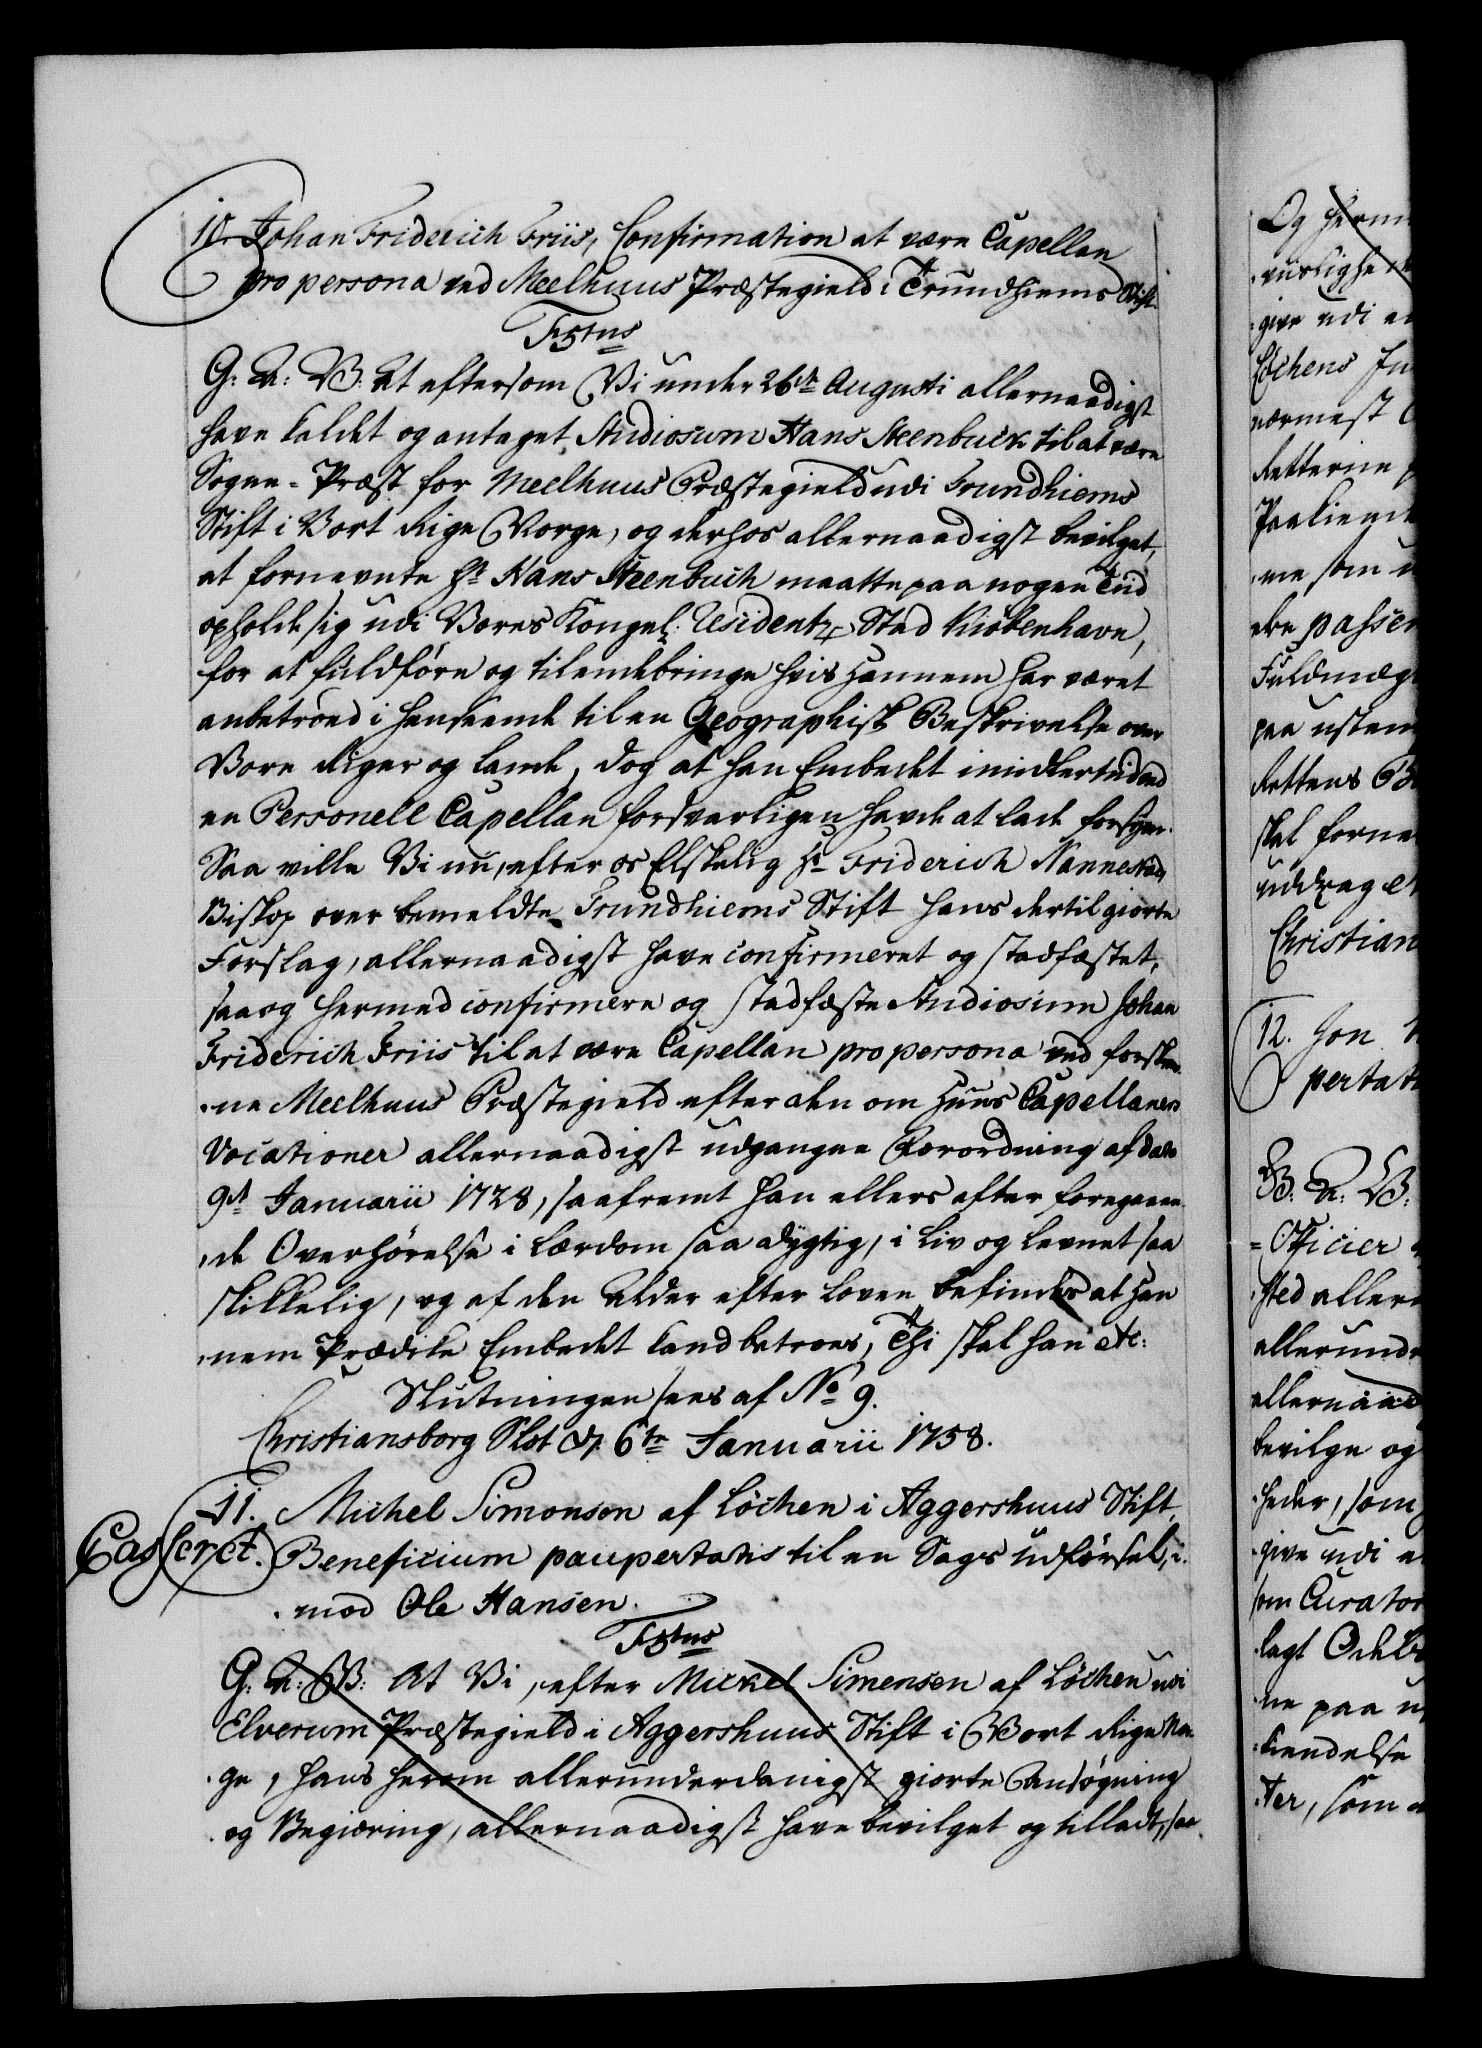 10. Johan Friderich Friis, Confirmation at være Capellan
pro persona ved Meelhuus Præstegield i Trundhiems Stift.
F5tus
G: A: V: At eftersom Vi under 26de Augusti allernaadigst
have kaldet og antaget Studiosum Hans Steenbuch til at være
Sogne-Præst for Meelhuus Præstegield udi Trundhiems
Stift i Vort Rige Norge, og derhos allernaadigst bevilget,
at fornevnte Hr Hans Steenbuch maatte paa nogen Tiid
opholde sig udi Vores Kongel: Residentz Stad Kiøbenhavn,
for at fuldføre og tilendebringe hvis hannem har været
anbetroed i henseende til en Geographisk Beskrivelse over
Vore Riger og Lande, dog at han Embedet imidlertiid ved
en Personell Capellan forsvarligen havde at lade forsyne.
Saa ville Vi nu, efter os Elskelig Hr Friderich Nannestad,
Biskop over bemeldte Trundhiems Stift hans dertil giorte
Forslag, allernaadigst have confirmeret og stadfæstet,
saa og hermed confirmere og stadfæste Studiosum Johan
Friderich Friis til at være Capellan pro persona ved forskrev-
-ne Meelhuus Præstegield efter den om Huus Capellaners
Vocationer allernaadigst udgangne Forordning af dato
9de Januarii 1728, saafremt han ellers efter foregaaen-
-de Overhørelse i Lærdom saa dygtig, i Liv og Levnet saa
skikkelig, og af den Alder efter Loven befindes at han-
-nem Prædike Embedet kand betroes, Thi skal han etc:
Slutningen sees af No 9.
Christiansborg Slot d. 6te Januarii 1758.
11. Michel Simonsen af Løchen i Aggershuus Stift,
Casseret. Beneficium paupertatis til en Sags udførsel, i-
-mod Ole Hansen.
F5tus
G: A: V: At Vi, efter Mickel Simensen af Løchen udi
Elverum Præstegield i Aggershuus Stift i Vort Rige Nor-
-ge, hans herom allerunderdanigst giorte Ansøgning
og Begiæring, allernaadigst have bevilget og tilladt, saa
Og herm
give udi e
Løchens
nærmest
Retterne
-me som u
Fuldmægt
paa usten
Rettens
skal forne
uddrage
Christian
12. Jon
pertat
G: A: V:
-Officier
-sted allern
allerunde
allernaad
bevilge og
-heder, som
-give udi e
som Curator
-lagt
-ne paa u
-kiendelse
-ter, som